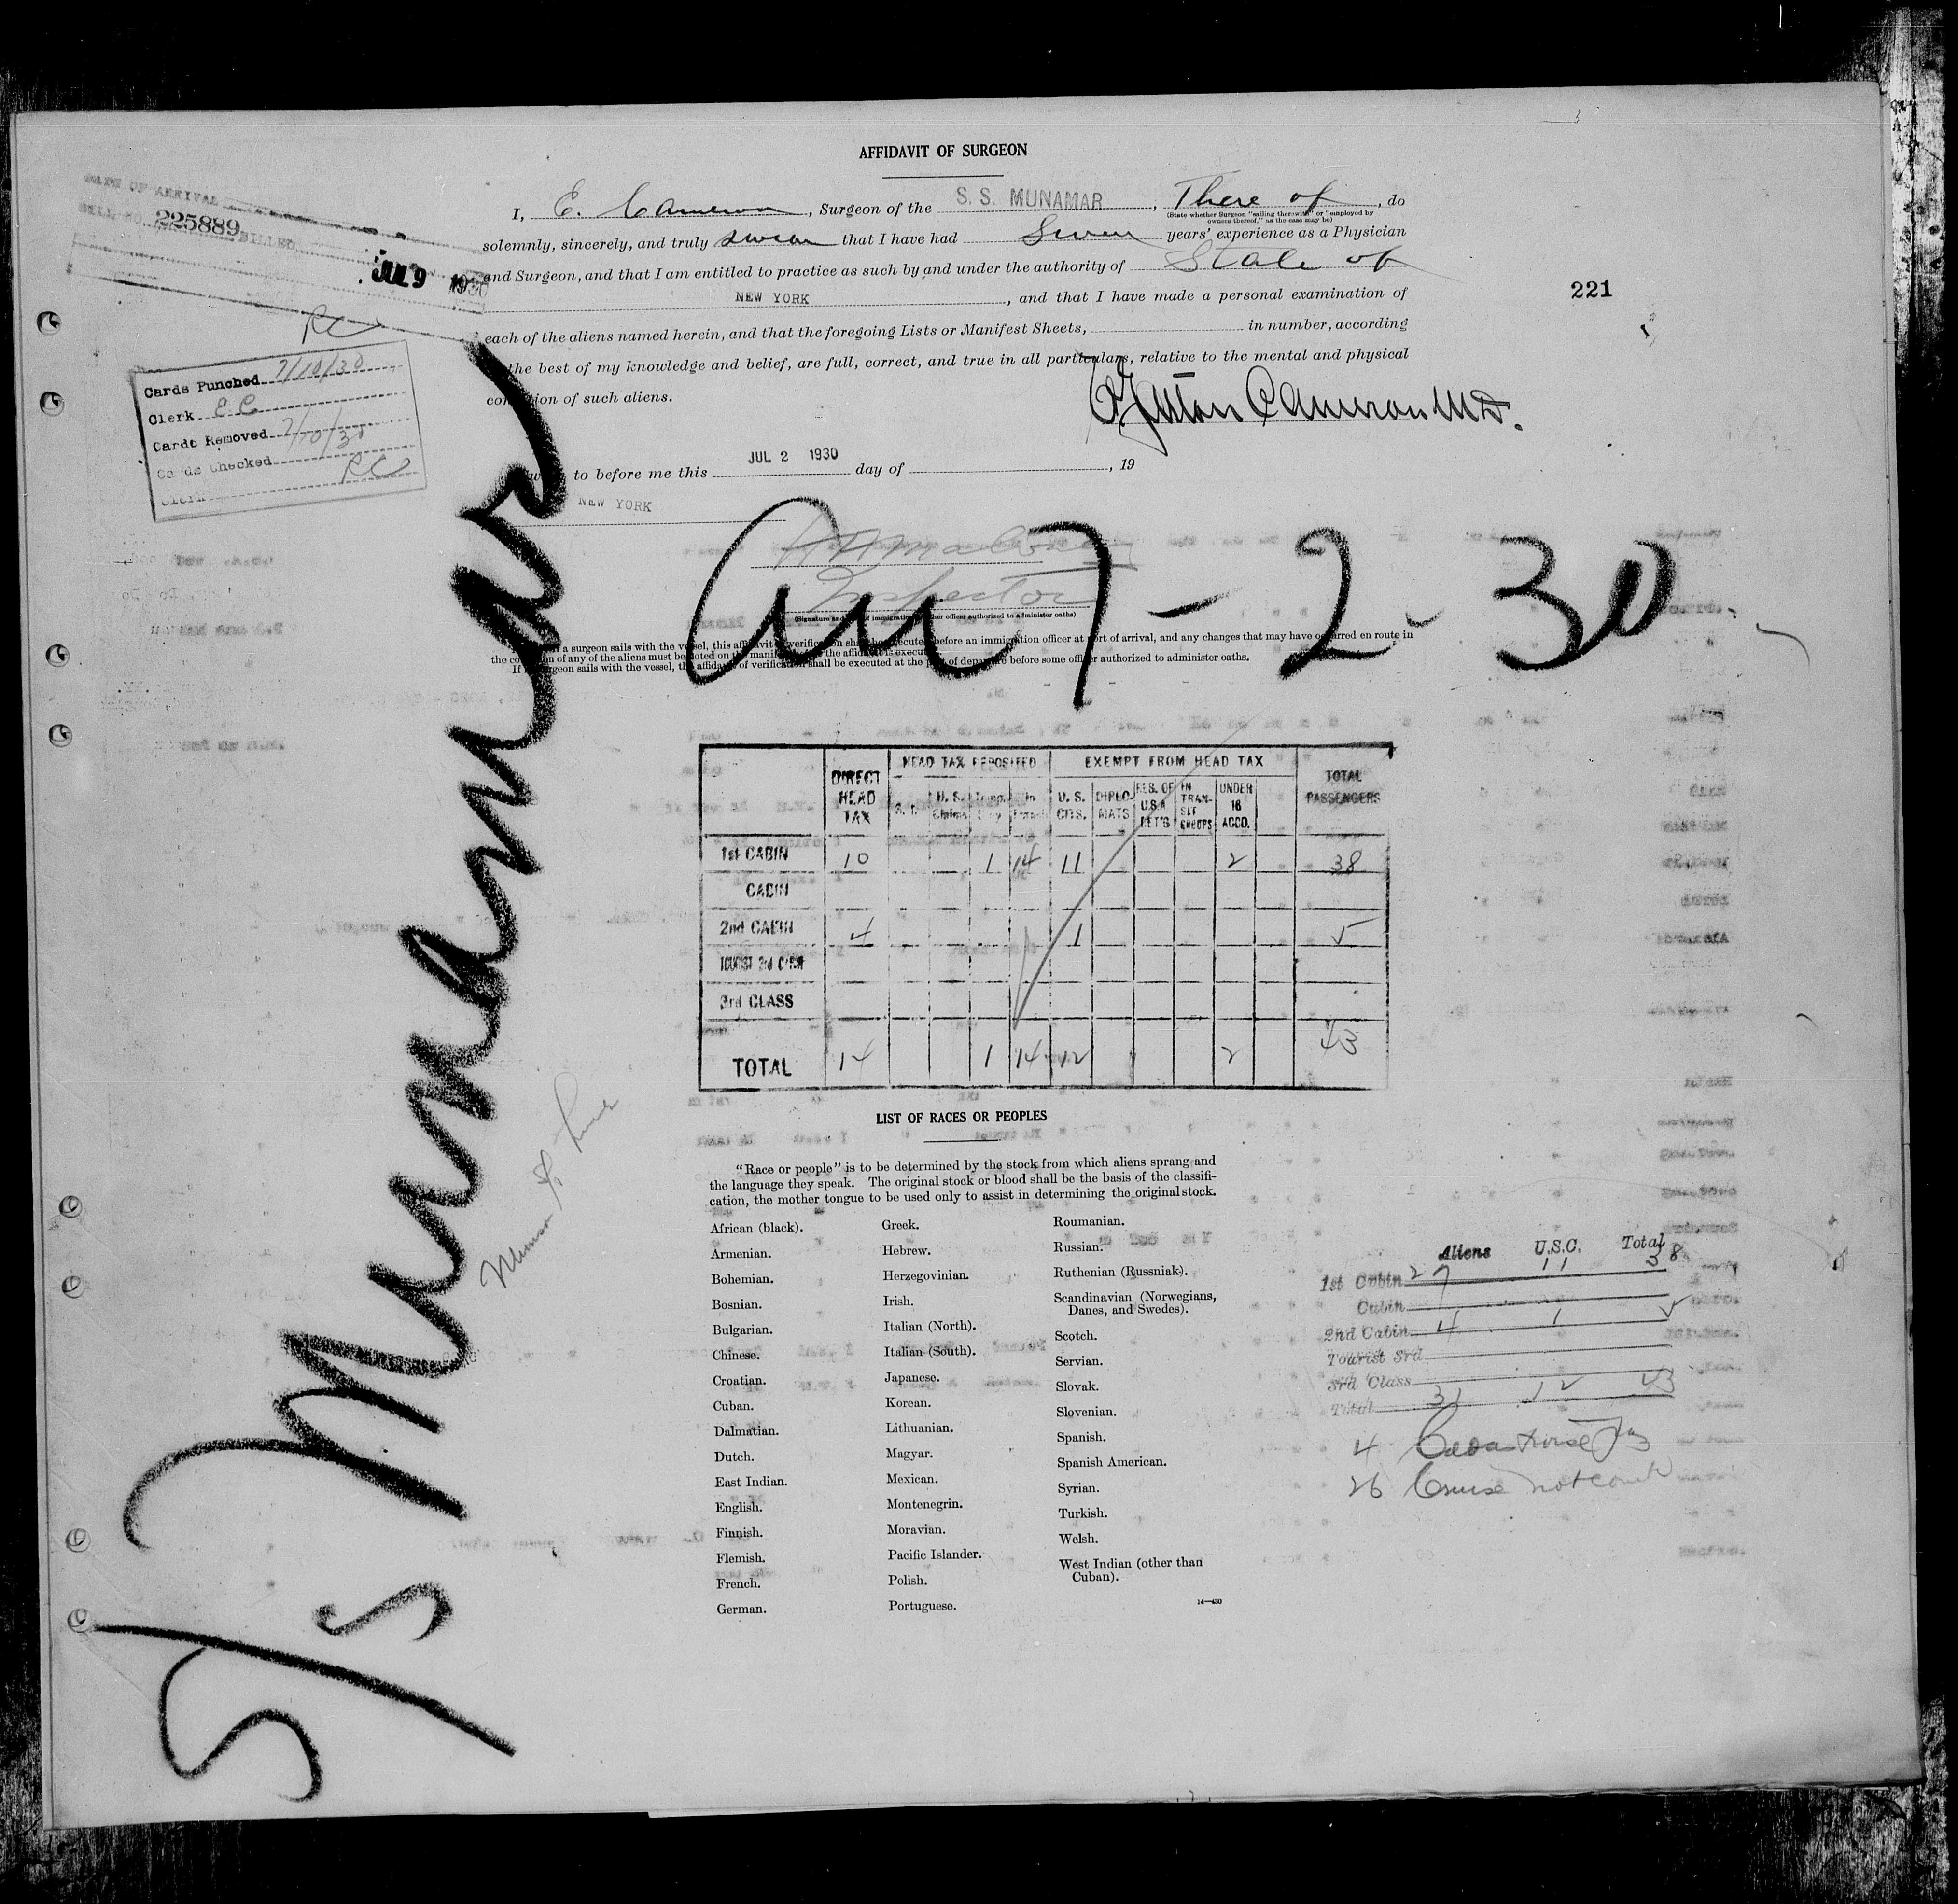 3
AFFIDAVIT OF SURGEON
I, E. Cameron, Surgeon of the S. S. MUNAMAR, There of, do
(State whether Surgeon "sailing therewith" or "employed by owners thereof," as the case may be)
solemnly, sincerely, and truly swear that I have had Seven years' experience as a Physician
and Surgeon, and that I am entitled to practice as such by and under the authority of State of
NEW YORK, and that I have made a personal examination of
each of the aliens named herein, and that the foregoing Lists or Manifest Sheets, in number, according
the best of my knowledge and belief, are full, correct, and true in all particulars, relative to the mental and physical
condition of such aliens.
Cameron M.D.
to before me this JUL 2 1930 day of , 19
NEW YORK
Inspector
(Signature and of immigration other officer authorized to administer oaths)
a surgeon sails with the vessel, this affidavit verification shall be executed before an immigration officer at port of arrival, and any changes that may have occurred en route in
the condition of any of the aliens must be noted on the manifest the affidavit is executed
If surgeon sails with the vessel, the affidavit of verification shall be executed at the port of departure before some officer authorized to administer oaths.
DATE OF ARRIVAL
BILL NO. 225889 BILLED
JUL 9 1930
RC
Cards Punched 7/10/30
Clerk E C
Cards Removed 7/10/30
Cards Checked RC
Clerk
221
S/S Munamar
Arr 7-2-30
Munson SS Line
DIRECT HEAD TAX
HEAD TAX DEPOSITED
EXEMPT FROM HEAD TAX
TOTAL PASSENGERS
U. S. Claims
U. S. CITS.
DIPLOMATS
RES. OF U.S.A RET'G
IN TRANSIT GROUPS
UNDER 16 ACCD.
1st CABIN 10 1 14 11 2 38
CABIN
2nd CABIN 4 1 5
TOURIST 3rd CABIN
3rd CLASS
TOTAL 14 1 14 12 2 43
LIST OF RACES OR PEOPLES
"Race or people" is to be determined by the stock from which aliens sprang and
the language they speak. The original stock or blood shall be the basis of the classifi-
cation, the mother tongue to be used only to assist in determining the original stock.
African (black).
Armenian.
Bohemian.
Bosnian.
Bulgarian.
Chinese.
Croatian.
Cuban.
Dalmatian.
Dutch.
East Indian.
English.
Finnish.
Flemish.
French.
German.
Greek.
Hebrew.
Herzegovinian.
Irish.
Italian (North).
Italian (South).
Japanese.
Korean.
Lithuanian.
Magyar.
Mexican.
Montenegrin.
Moravian.
Pacific Islander.
Polish.
Portuguese.
Roumanian.
Russian.
Ruthenian (Russniak).
Scandinavian (Norwegians,
Danes, and Swedes).
Scotch.
Servian.
Slovak.
Slovenian.
Spanish.
Spanish American.
Syrian.
Turkish.
Welsh.
West Indian (other than
Cuban).
14—430
Aliens U.S.C. Total
1st Cabin 27 11 38
Cabin
2nd Cabin 4 1 5
Tourist 3rd
3rd Class
Total 31 12 43
4
26 Cruise not